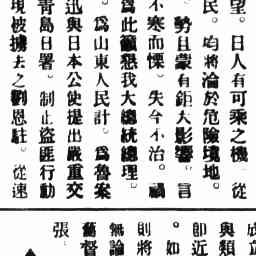 望。日人有可乘之機。從
民。均將淪於危險境地。
勢且蒙有鉅大影響。言
不寒而慄。失今不治。禍
爲此籲懇我大總統總理。
爲山東人民計。爲魯案
迅與日本公使提出嚴重交
青島日署。制止盜匪行動
現被擄去之劉恩駐。從速
成立
與類
即近
。如
則將
無論
舊督
張